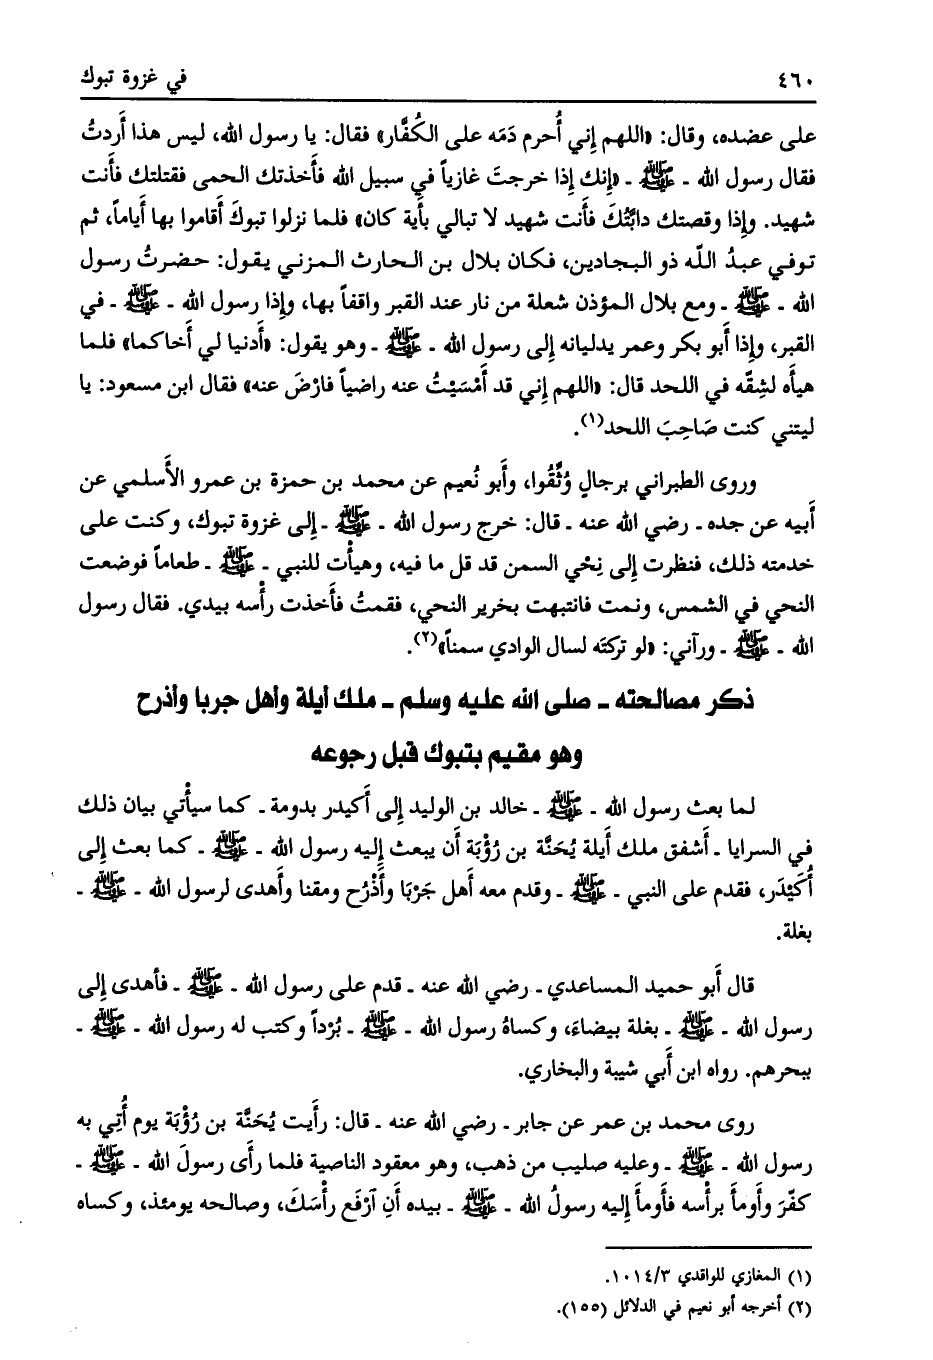 ٤٦٠ في غزوة تبوك
على عضده، وقال: «اللهم إِني أُحرم دَمَه على الكُفَّار» فقال: يا رسول الله، ليس هذا أَردتُ
فقال رسول الله ـ ﷺ ـ «إِنك إِذا خرجتَ غازياً في سبيل الله فأَخذتك الحمى فقتلتك فأَنت
شهيد. وإِذا وقصتك دابَّتُكَ فأَنت شهيد لا تبالي بأَية كان» فلما نزلوا تبوكَ أَقاموا بها أَياماً، ثم
توفي عبدُ اللّه ذو البجادين، فكان بلال بن الحارث المزني يقول: حضرتُ رسول
الله ـ ﷺ ـ ومع بلال المؤذن شعلة من نار عند القبر واقفاً بها، وإِذا رسول الله ـ ﷺ ـ في
القبر، وإِذا أَبو بكر وعمر يدليانه إِلى رسول الله ـ ﷺ ـ وهو يقول: «أَدنيا لي أَخاكما» فلما
هيأَه لشِقّه في اللحد قال: «اللهم إِني قد أَمْسَيْتُ عنه راضياً فارْضَ عنه» فقال ابن مسعود: يا
ليتني كنت صَاحِبَ اللحد(١).
وروى الطبراني برجالٍ وُثِّقُوا، وأَبو نُعيم عن محمد بن حمزة بن عمرو الأَسلمي عن
أَبيه عن جده ـ رضي الله عنه ـ قال: خرج رسول الله ـ ﷺ ـ إِلى غزوة تبوك، وكنت على
خدمته ذلك، فنظرت إِلى نِحْي السمن قد قل ما فيه، وهيأْت للنبي ـ ﷺ ـ طعاماً فوضعت
النحي في الشمس، ونمت فانتبهت بخرير النحي، فقمتُ فأَخذت رأْسه بيدي. فقال رسول
الله ـ ﷺ ـ ورآني: «لو تركتَه لسال الوادي سمناً»(٢).
ذكر مصالحته ـ صلى الله عليه وسلم ـ ملك أيلة وأهل جربا وأذرح
وهو مقيم بتبوك قبل رجوعه
لما بعث رسول الله ـ ﷺ ـ خالد بن الوليد إِلى أَكيدر بدومة ـ كما سيأْتي بيان ذلك
في السرايا ـ أَشفق ملك أَيلة يُحَنَّة بن رُؤْبَة أَن يبعث إِليه رسول الله ـ ﷺ ـ كما بعث إِلى
أُكَيْدَر، فقدم على النبي ـ ﷺ ـ وقدم معه أَهل جَرْبَا وأَذْرُح ومقنا وأَهدى لرسول الله ـ ﷺ ـ
بغلة.
قال أَبو حميد الساعدي ـ رضي الله عنه ـ قدم على رسول الله ـ ﷺ ـ فأهدى إِلى
رسول الله ـ ﷺ ـ بغلة بيضاءَ، وكساهُ رسول الله ـ ﷺ ـ بُرْداً وكتب له رسول الله ـ ﷺ ـ
ببحرهم. رواه ابن أَبي شيبة والبخاري.
روى محمد بن عمر عن جابر ـ رضي الله عنه ـ قال: رأَيت يُحَنَّة بن رُؤْبَة يوم أُتِي به
رسول الله ـ ﷺ ـ وعليه صليب من ذهب، وهو معقود الناصية فلما رأَى رسولَ الله ـ ﷺ ـ
كفّرَ وأَومأَ برأْسه فأَومأَ إِليه رسولُ الله ـ ﷺ ـ بيده أَنِ ٱرْفَع رأْسَكَ، وصالحه يومئذ، وكساه
(١) المغازي للواقدي ١٠١٤/٣.
(٢) أخرجه أبو نعيم في الدلائل (١٥٥).